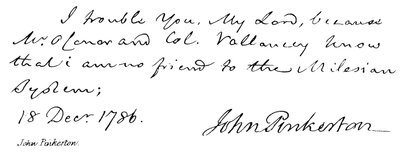 I trouble You, My Lord, because
Mr. O Conor and Col. Vallancey know
that i am no friend to the Milesian
System;
18 Decr. 1786.
John Pinkerton
John Pinkerton.